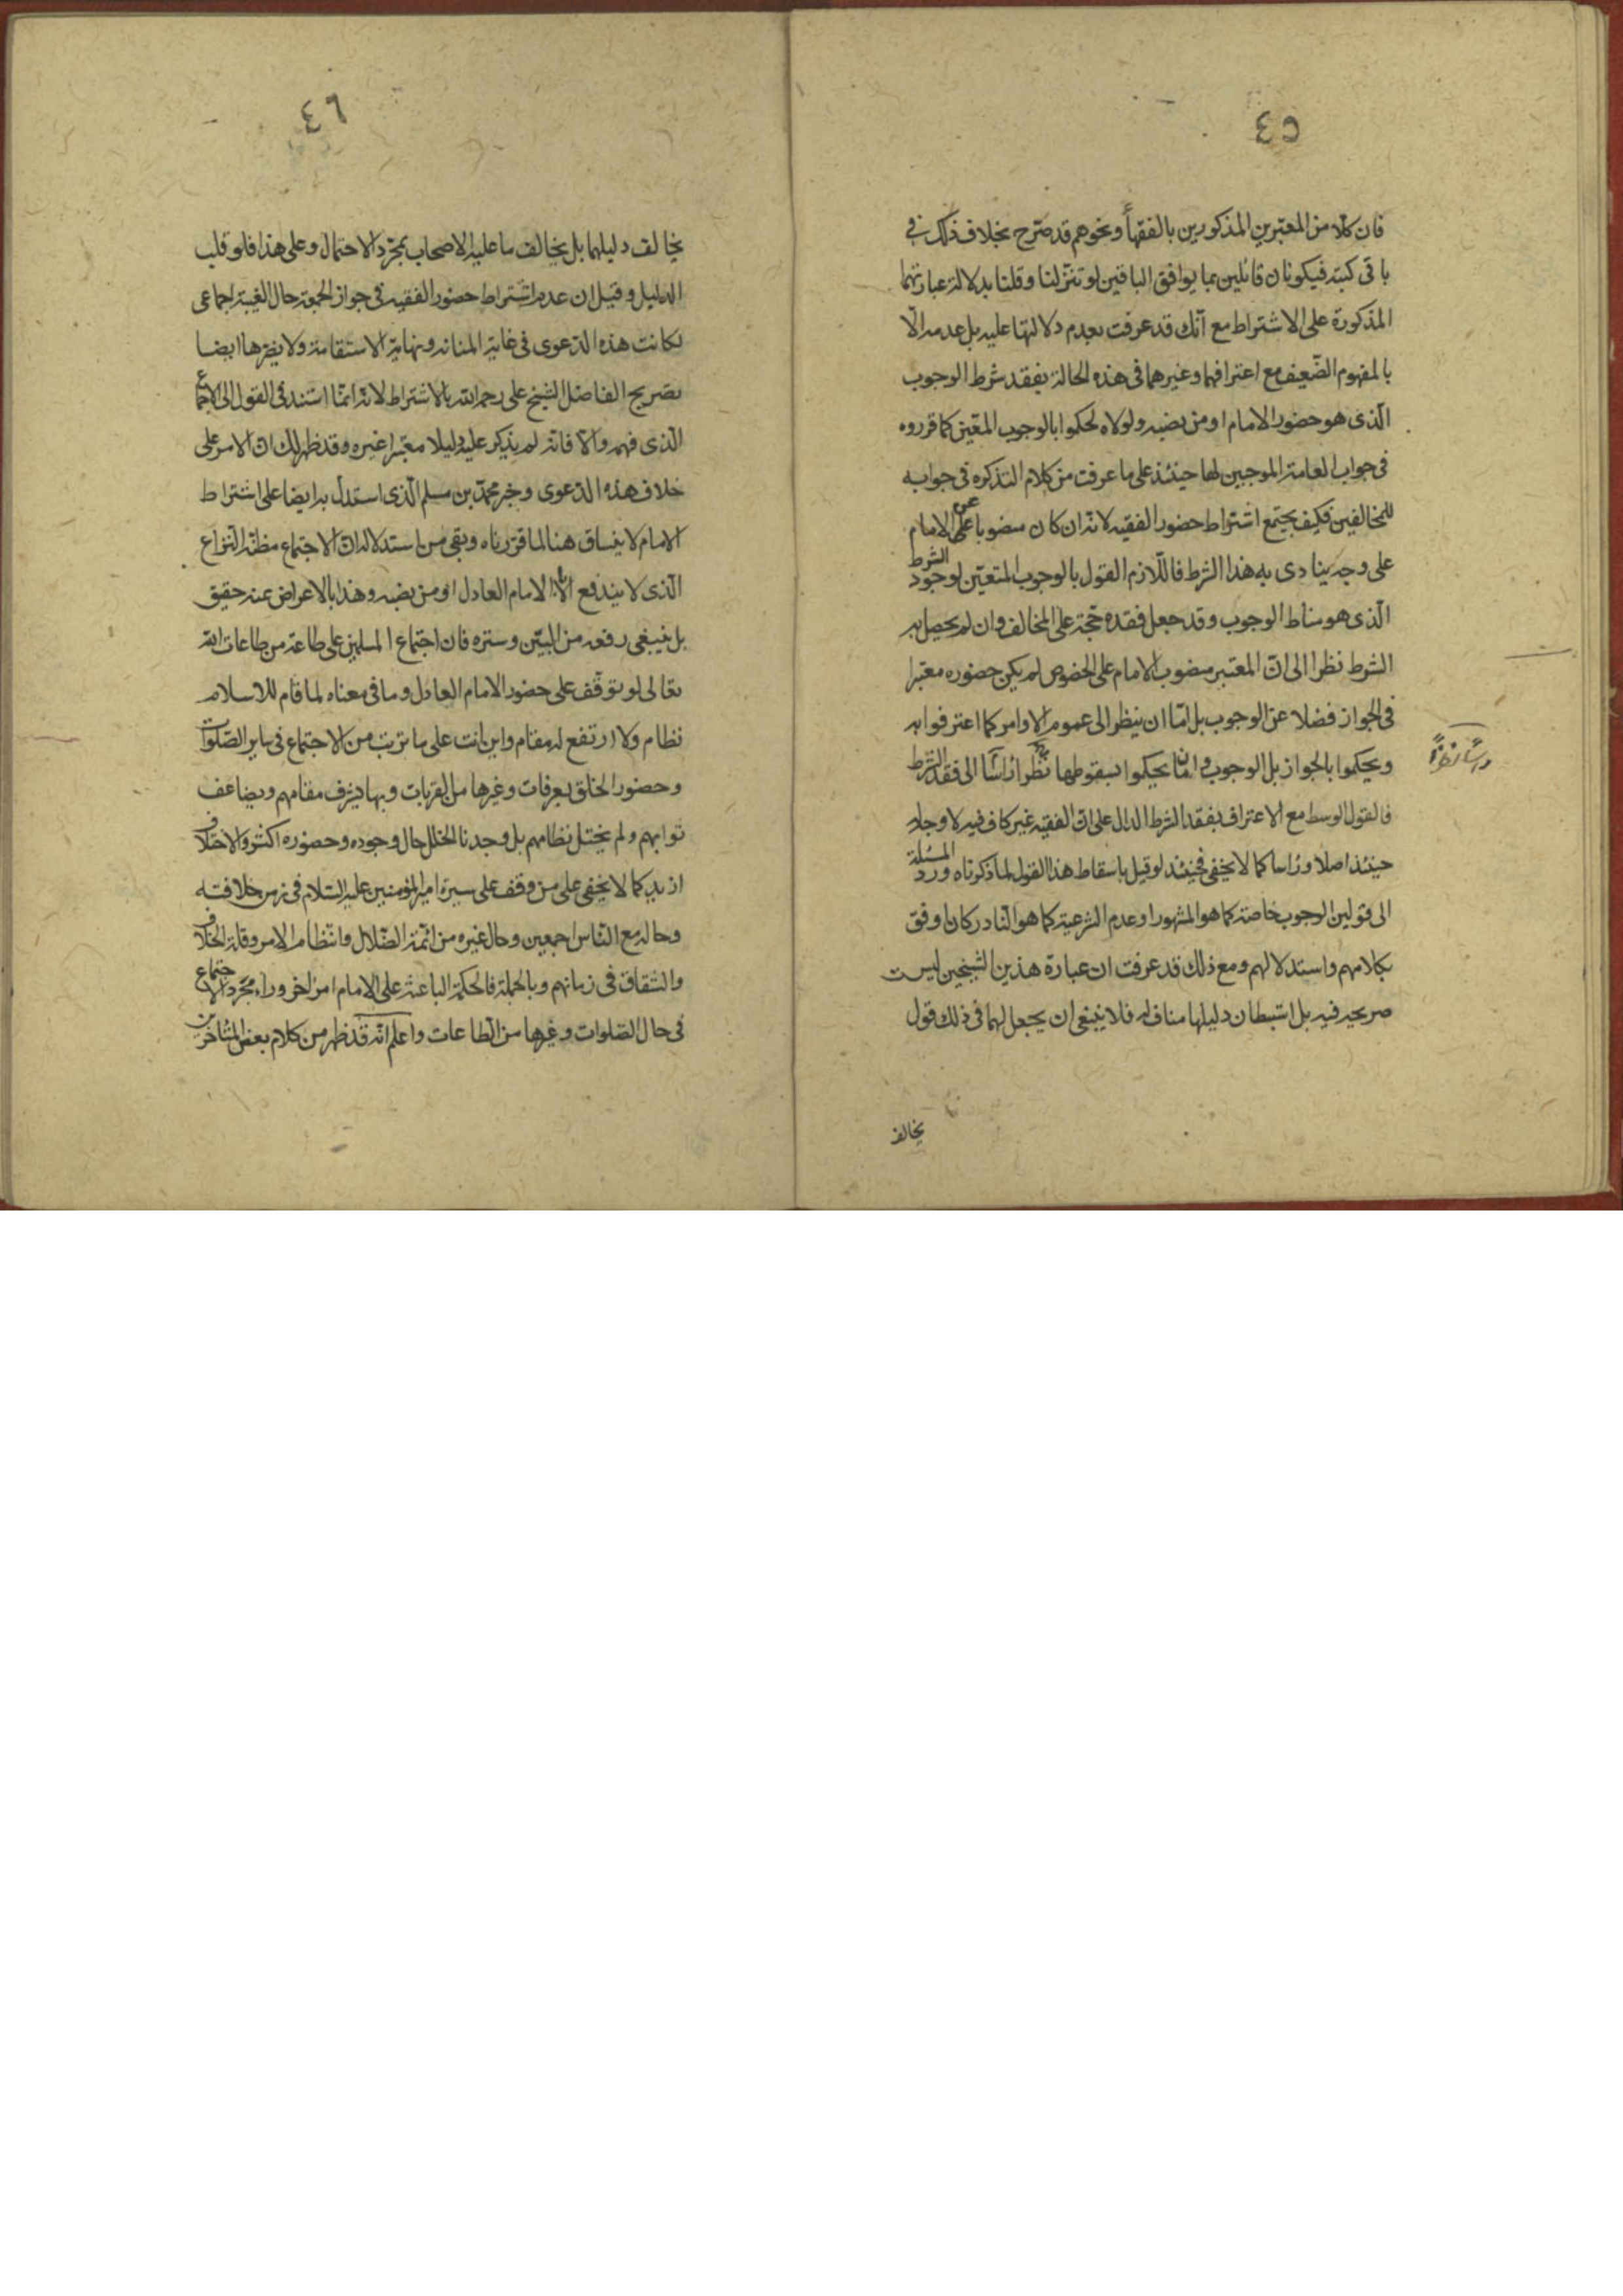 ٤٥
فان كلا من المعتبرين المذكورين بالفقهاء ونحوهم قد صرح بخلاف ذلك في
باقي كتبه فيكونان قائلين بما يوافق الباقين لو تنزلنا وقلنا بدلالة عبارتهما
المذكورة على الاشتراط مع أنك قد عرفت بعدم دلالتها عليه بل عدمه الّا
بالمفهوم الضعيف مع اعترافهما وغيرهما في هذه الحالة بفقد شرط الوجوب
الّذى هو حضور الامام او من نصبه ولولاه لحكموا بالوجوب المعيّن كما قرروه
في جواب العامة الموجبين لها حينئذ على ما عرفت من كلام التذكره في جوابه
للمخالفين فكيف يجتمع اشتراط حضور الفقيه لانه ان كان منصوبا عن الامام
على وجه يتادى به هذا الشرط فاللّازم القول بالوجوب المتعيّن لوجود الشرط
الّذى هو مناط الوجوب وقد جعل فقده حجّة على المخالف وان لم يحصل به
الشرط نظرا الى ان المعتبر منصوب الامام على الخصوص لم يكن حضوره معتبرا
في الجواز فضلا عن الوجوب بل امّا ان ينظر الى عموم الاوامر كما اعترفوا به
ويحكموا بالجواز بل الوجوب و امّا ان يحكموا بسقوطها نظرا الى فقد الشرط
فالقول الوسط مع الاعتراف بفقد الشرط الدال على انّ الفقيه غير كاف فيه لا وجه له
حينئذ اصلا وراسا كما لا يخفى فحينئذ لو قيل باسقاط هذا القول لما ذكرناه ورد المسئلة
الى قولين الوجوب خاصة كما هو المشهور او عدم الشرعية كما هو النّادر كان اوفق
بكلامهم واستدلالهم ومع ذلك قد عرفت ان عبارة هذين الشيخين ليست
صريحه فيه بل استبطان دليلها مناف له فلا ينبغى ان يجعل لهما في ذلك قول
يخالف
٤٦
يخالف دليلهما بل يخالف ما عليه الاصحاب بمجرّد الاحتمال وعلى هذا فلو قلب
الدليل وقيل ان عدم اشتراط حضور الفقيه في جواز الجمعة حال الغيبة اجماعى
لكانت هذه الدّعوى في غاية المتانه ونهاية الاستقامة ولا يضرها ايضا
تصريح الفاضل الشيخ على رحمه الله بالاشتراط لانه انّما استند في القول الى الاجماع
الّذى فهمه والّا فانّه لم يذكر عليه دليلا معتبرا غيره وقد ظهر لك ان الامر على
خلاف هذه الدّعوى وخبر محمّد بن مسلم الّذى استدلّ به ايضا على اشتراط
الامام لا ينساق هنا لما قرّرناه وبقى من استدلاله ان الاجتماع مظنّة النّزاع
الّذى لا يندفع الّا بالامام العادل او من نصبه وهذا بالاعراض عنه حقيق
بل ينبغي رفعه من البين وستره فان اجتماع المسلمين على طاعة من طاعات الله
تعالى لو توقّف على حضور الامام العادل وما في معناه لما قام للاسلام
نظام ولا ارتفع له مقام واين انت على ما ترتب من الاجتماع في ساير الصّلوات
وحضور الخلق بعرفات وغيرها من القربات وبها يشرف مقامهم ويضاعف
ثوابهم ولم يختل نظامهم بل وجدنا الخلل حال وجوده وحضوره اكثر والاختلاف
ازيد كما لا يخفى على من وقف على سيرة امير المؤمنين عليه السّلام في زمن خلافته
وحاله مع النّاس اجمعين وحال غيره من ائمّة الضّلال وانتظام الامر وقلة الخلاف
والشّقاق في زمانهم وبالجملة فالحكمة الباعثة على الامام امر اخر وراء مجّرد الاجتماع
في حال الصّلوات وغيرها من الطّاعات واعلم انّه قد ظهر من كلام بعض المتاخّرين